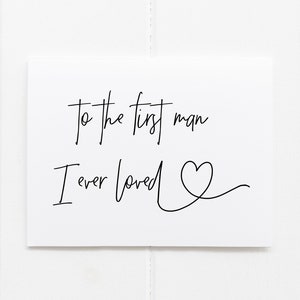 to the first man
I ever loved